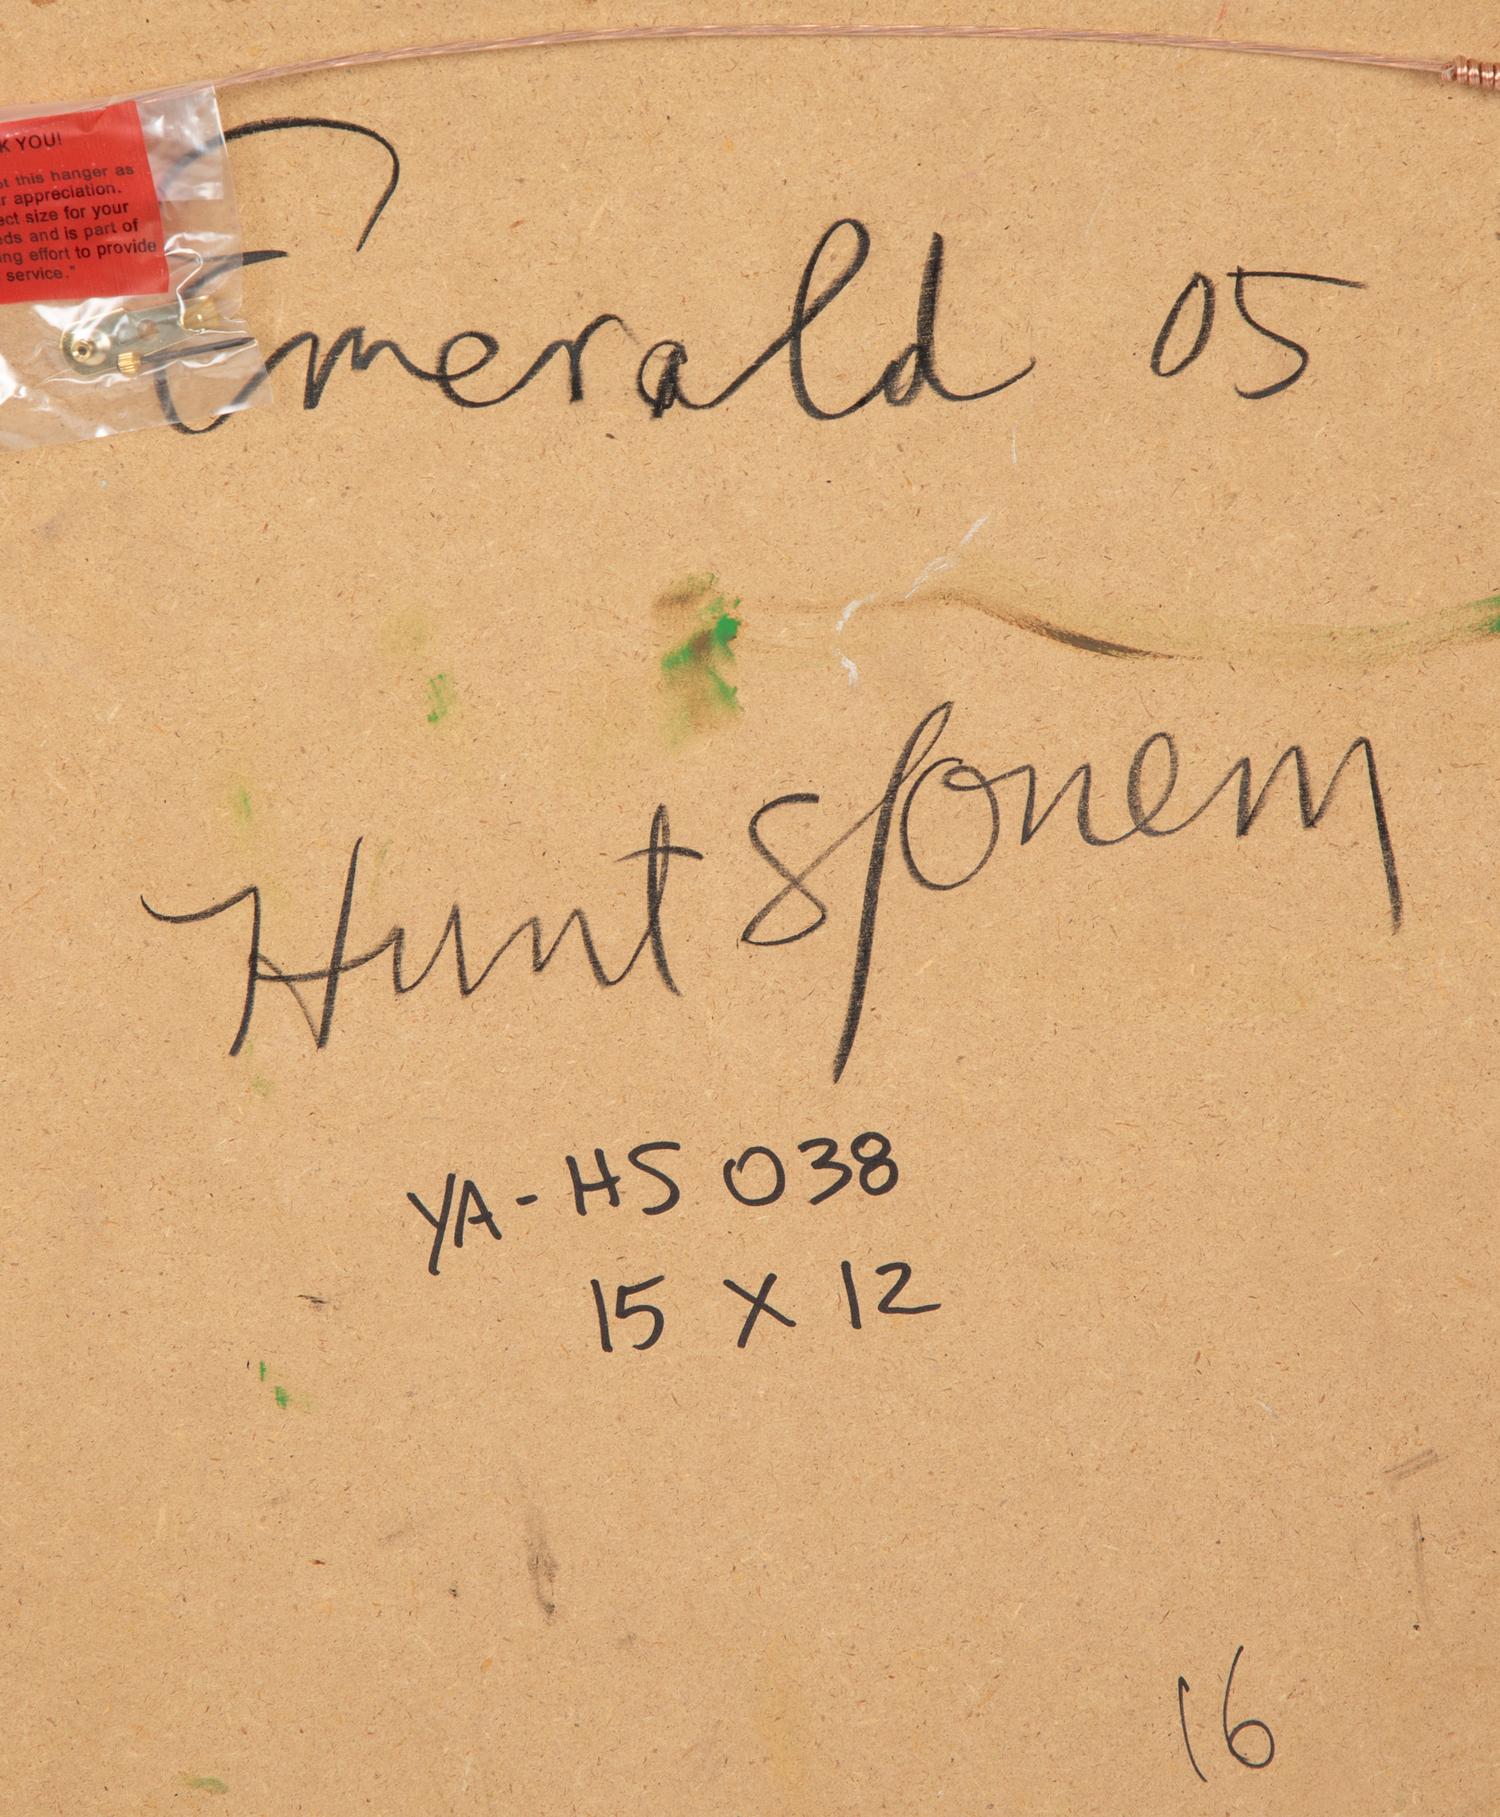 K YOU!
ot this hanger as
r appreciation.
ect size for your
eds and is part of
ng effort to provide
service."
Emerald 05
Hunt Slonem
YA-HS 038
15 X 12
16